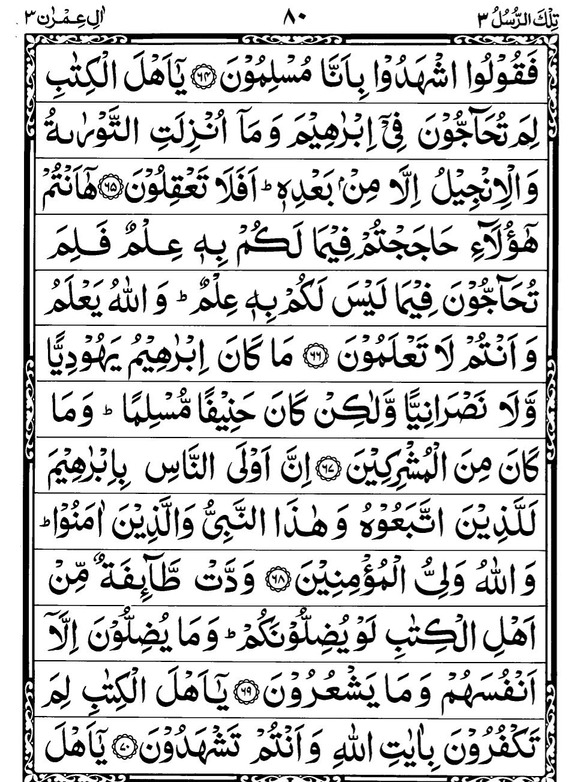 تِلْكَ الرُّسُلُ ٣ ٨٠ اٰلِ عِمْرٰن ٣
فَقُوْلُوا اشْهَدُوْا بِاَنَّا مُسْلِمُوْنَ ﴿٦٤﴾ يٰۤاَهْلَ الْكِتٰبِ
لِمَ تُحَآجُّوْنَ فِىْۤ اِبْرٰهِيْمَ وَمَاۤ اُنْزِلَتِ التَّوْرٰىةُ
وَالْاِنْجِيْلُ اِلَّا مِنْۢ بَعْدِهٖ ؕ اَفَلَا تَعْقِلُوْنَ ﴿٦٥﴾ هٰۤاَنْتُمْ
هٰٓؤُلَآءِ حَاجَجْتُمْ فِيْمَا لَكُمْ بِهٖ عِلْمٌ فَلِمَ
تُحَآجُّوْنَ فِيْمَا لَيْسَ لَكُمْ بِهٖ عِلْمٌ ؕ وَاللّٰهُ يَعْلَمُ
وَاَنْتُمْ لَا تَعْلَمُوْنَ ﴿٦٦﴾ مَا كَانَ اِبْرٰهِيْمُ يَهُوْدِيًّا
وَّلَا نَصْرَانِيًّا وَّلٰكِنْ كَانَ حَنِيْفًا مُّسْلِمًا ؕ وَمَا
كَانَ مِنَ الْمُشْرِكِيْنَ ﴿٦٧﴾ اِنَّ اَوْلَى النَّاسِ بِاِبْرٰهِيْمَ
لَلَّذِيْنَ اتَّبَعُوْهُ وَهٰذَا النَّبِىُّ وَالَّذِيْنَ اٰمَنُوْا ؕ
وَاللّٰهُ وَلِىُّ الْمُؤْمِنِيْنَ ﴿٦٨﴾ وَدَّتْ طَّآئِفَةٌ مِّنْ
اَهْلِ الْكِتٰبِ لَوْ يُضِلُّوْنَكُمْ ؕ وَمَا يُضِلُّوْنَ اِلَّاۤ
اَنْفُسَهُمْ وَمَا يَشْعُرُوْنَ ﴿٦٩﴾ يٰۤاَهْلَ الْكِتٰبِ لِمَ
تَكْفُرُوْنَ بِاٰيٰتِ اللّٰهِ وَاَنْتُمْ تَشْهَدُوْنَ ﴿٧٠﴾ يٰۤاَهْلَ